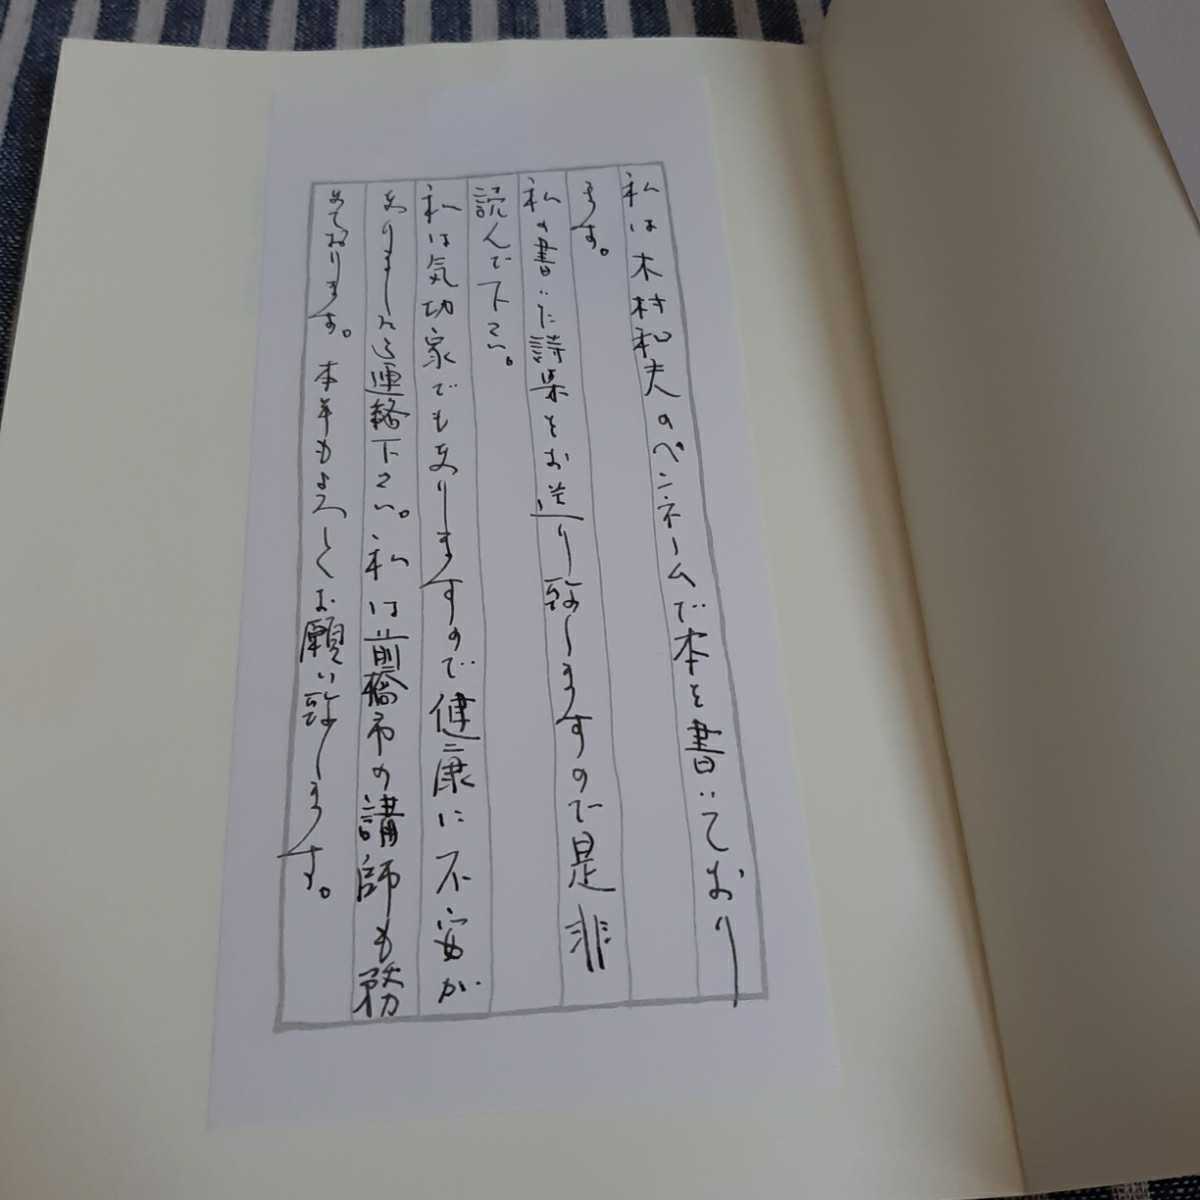 私は木村和夫のペンネームで本を書いており
ます。
私の書いた詩集をお送り致しますので是非
読んで下さい。
私は気功家でもありますので健康に不安が
ありましたら連絡下さい。私は前橋市の講師も務
めております。本年もよろしくお願い致します。